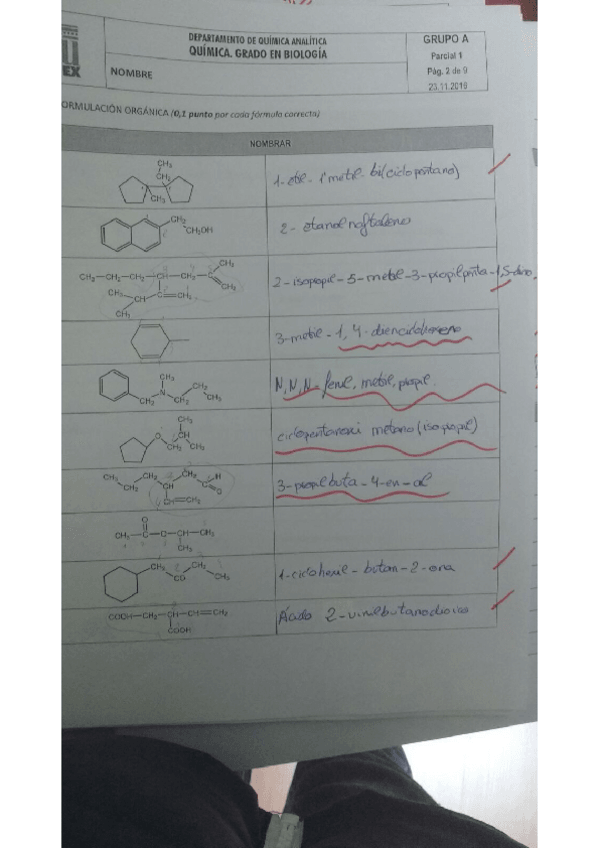 DEPARTAMENTO DE QUÍMICA ANALÍTICA
QUÍMICA. GRADO EN BIOLOGÍA
EX
NOMBRE
GRUPO A
Parcial 1
Pág. 2 de 9
23.11.2016
ORMULACIÓN ORGÁNICA (0,1 punto por cada fórmula correcta)
NOMBRAR
CH3
CH2
CH3
1-etil-1'metil-bi(ciclopentano)
CH2
CH2OH
2-etanolnaftaleno
CH3-CH2-CH2-CH-CH2-C CH3
CH2
CH3 CH C=CH2
CH3
2-isopropil-5-metil-3-propilpenta-1,5-dino
3-metil-1,4-
CH3
CH2 N CH2 CH2
CH3
N,N,N-fenil, metil, propil.
CH3
O CH
CH2 CH3
ciclopentanoxi metano (isopropil)
CH3 CH2 CH2 H
CH2 CH O
CH=CH2
3-propilbuta-4-en-al
O
CH3-C-O-CH-CH3
CH3
CH2 CH2
CO CH3
1-ciclohexil-butan-2-ona
COOH-CH2-CH-CH=CH2
COOH
Ácido 2-vinilbutanodioico